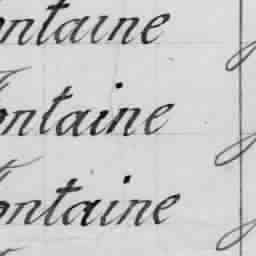 ontaine
Fontaine
Fontaine